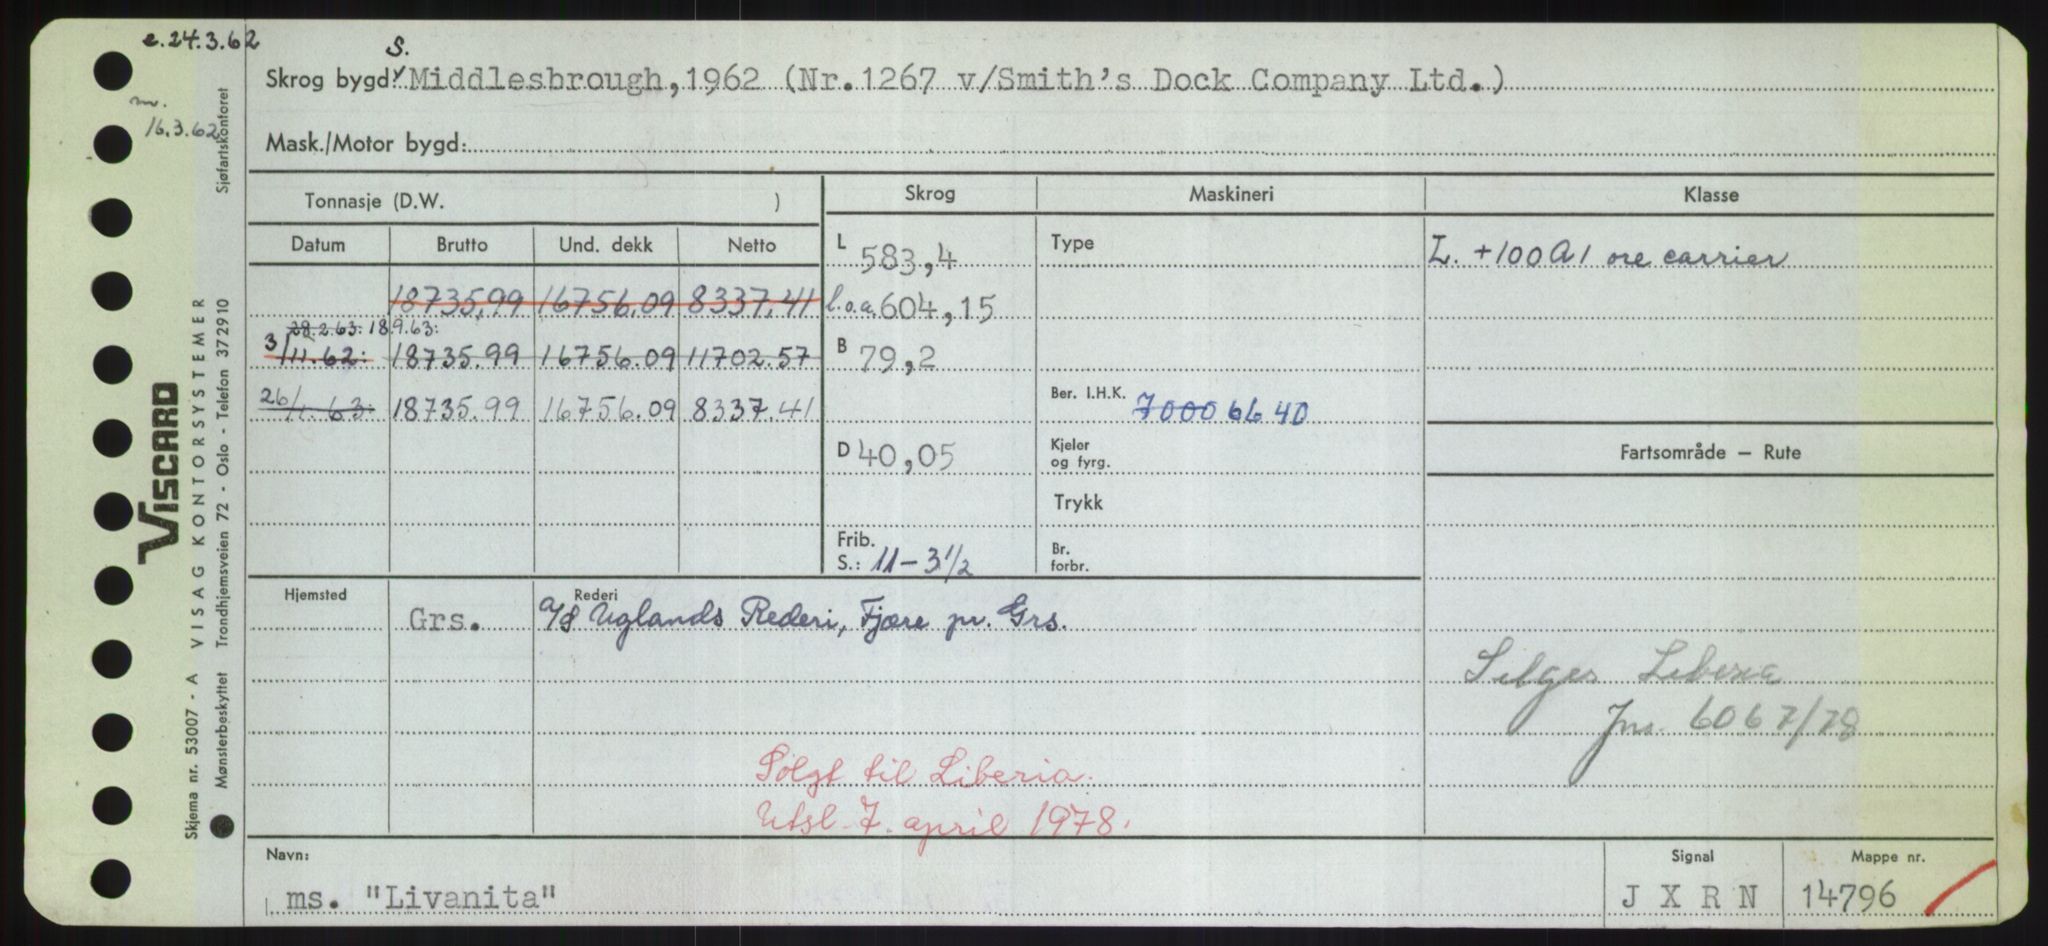 e. 24.3.62
m.
16.3.62
S.
Skrog bygd: Middlesbrough, 1962 (Nr. 1267 v/Smith's Dock Company Ltd.)
Mask./Motor bygd:
Tonnasje (D.W. )
Skrog
Maskineri
Klasse
Datum Brutto Und. dekk Netto
L 583,4
Type
L. +100A1 ore carrier
18735.99 16756.09 8337.41
l.o.a. 604,15
28.2.63: 18.9.63:
3/11.62: 18735.99 16756.09 11702.57
B 79,2
26/1.63: 18735.99 16756.09 8337.41
Ber. I.H.K. 7000 6640
D 40,05
Kjeler
og fyrg.
Fartsområde — Rute
Trykk
Frib.
S.: 11-3½
Br.
forbr.
Hjemsted Grs.
Rederi
A/S Uglands Rederi, Fjære pr. Grs.
Selges Liberia
Jnr. 6067/78
Solgt til Liberia.
Utsl. 7. april 1978.
Navn:
ms. "Livanita"
Signal
J X R N
Mappe nr.
14796
VISCARD
Skjema nr. 53007 - A VISAG KONTORSYSTEMER
Mønsterbeskyttet Trondhjemsveien 72 - Oslo - Telefon 372910 Sjøfartskontoret